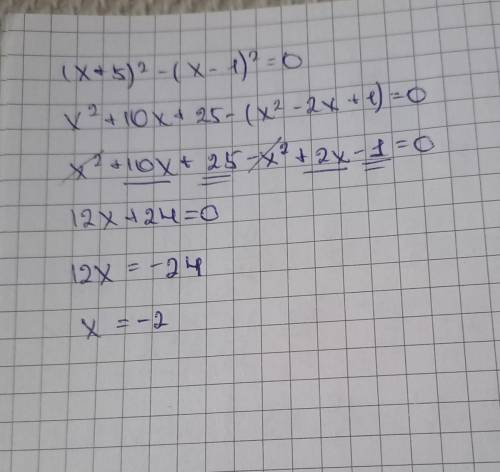 (x+5)² - (x - 1)² = 0
x² + 10x + 25 - (x² - 2x + 1) = 0
x² + 10x + 25 - x² + 2x - 1 = 0
12x + 24 = 0
12x = -24
x = -2